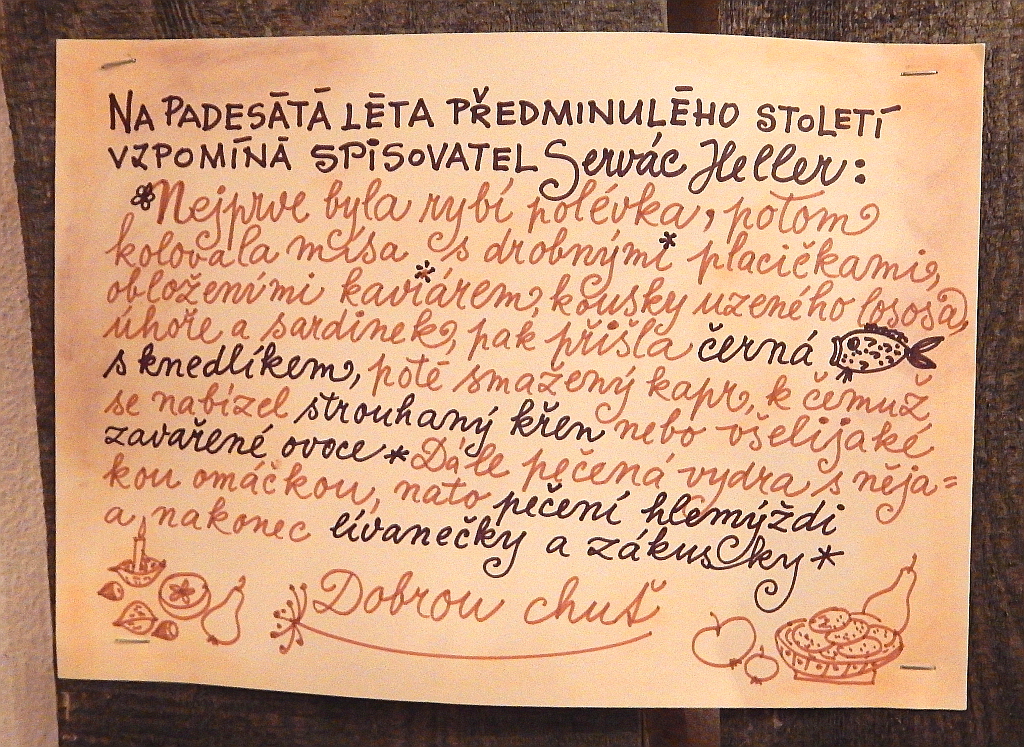 NA PADESÁTÁ LÉTA PŘEDMINULÉHO STOLETÍ
VZPOMÍNÁ SPISOVATEL Servác Heller:
*Nejprve byla rybí polévka, potom
kolovala mísa s drobnými placičkami,
obloženými kaviárem, kousky uzeného lososa,
úhoře a sardinek, pak přišla černá
s knedlíkem, poté smažený kapr, k čemuž
se nabízel strouhaný křen nebo všelijaké
zavařené ovoce * Dále pečená vydra s něja=
kou omáčkou, nato pečení hlemýždi
a nakonec lívanečky a zákusky *
Dobrou chuť